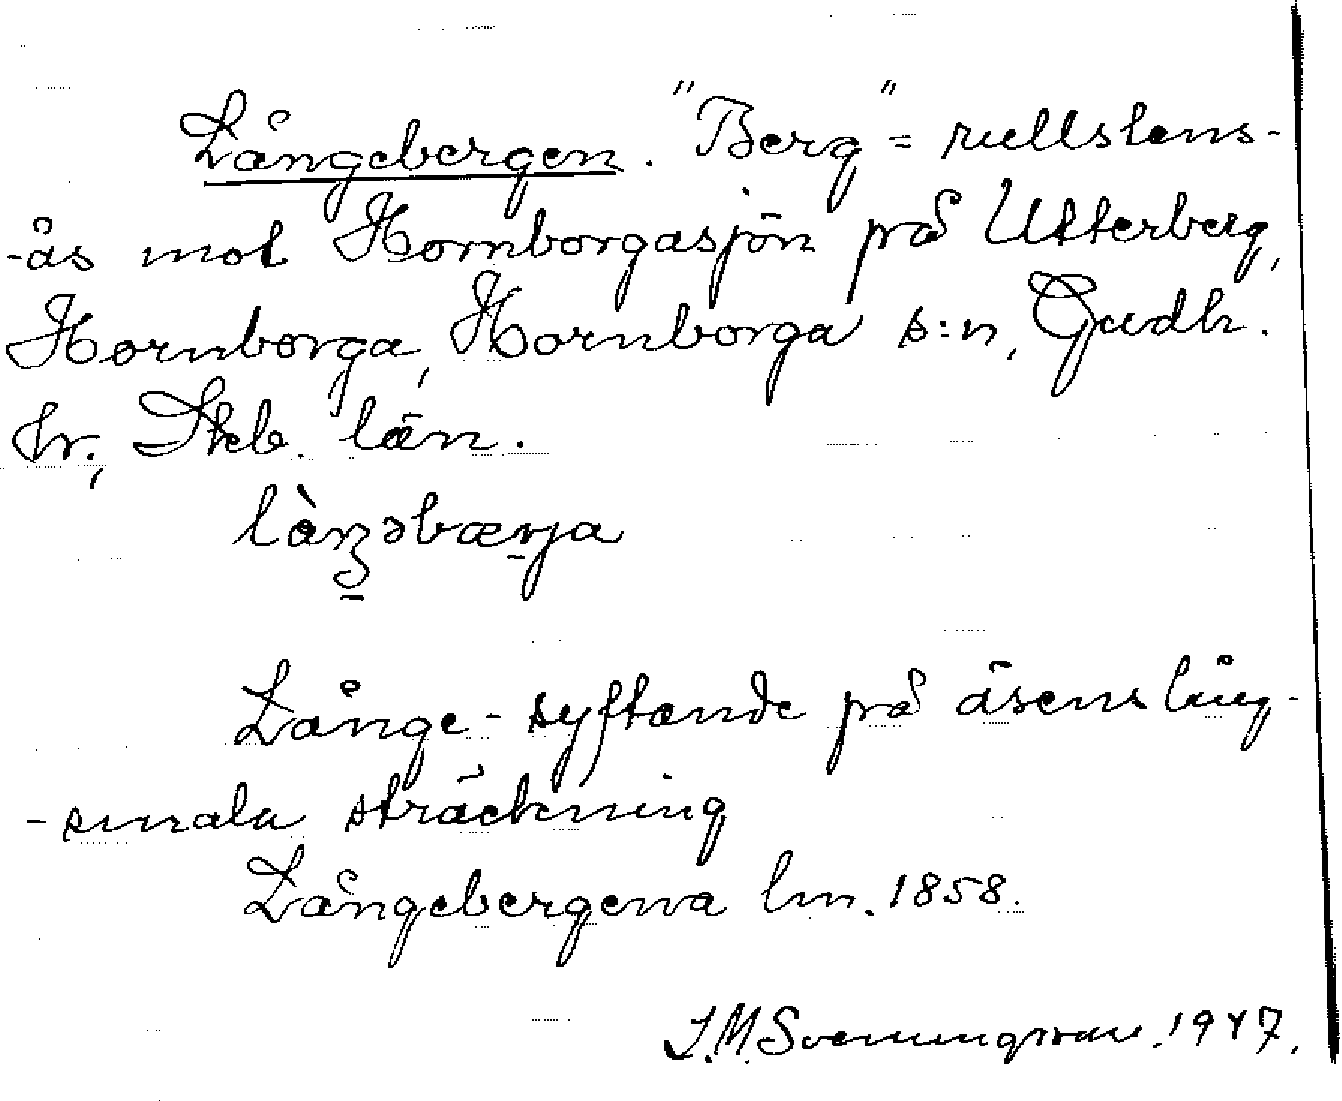 Långebergen. "Berg" = rullstens-
-ås mot Hornborgasjön på Utterberg,
Hornborga, Hornborga s:n, Gudh.
hr., Skb. län.
làŋʒəbærja
Långe- syftande på åsens lång-
-smala sträckning
Långebergena lm. 1858.
J.M. Svenungsson. 1947.